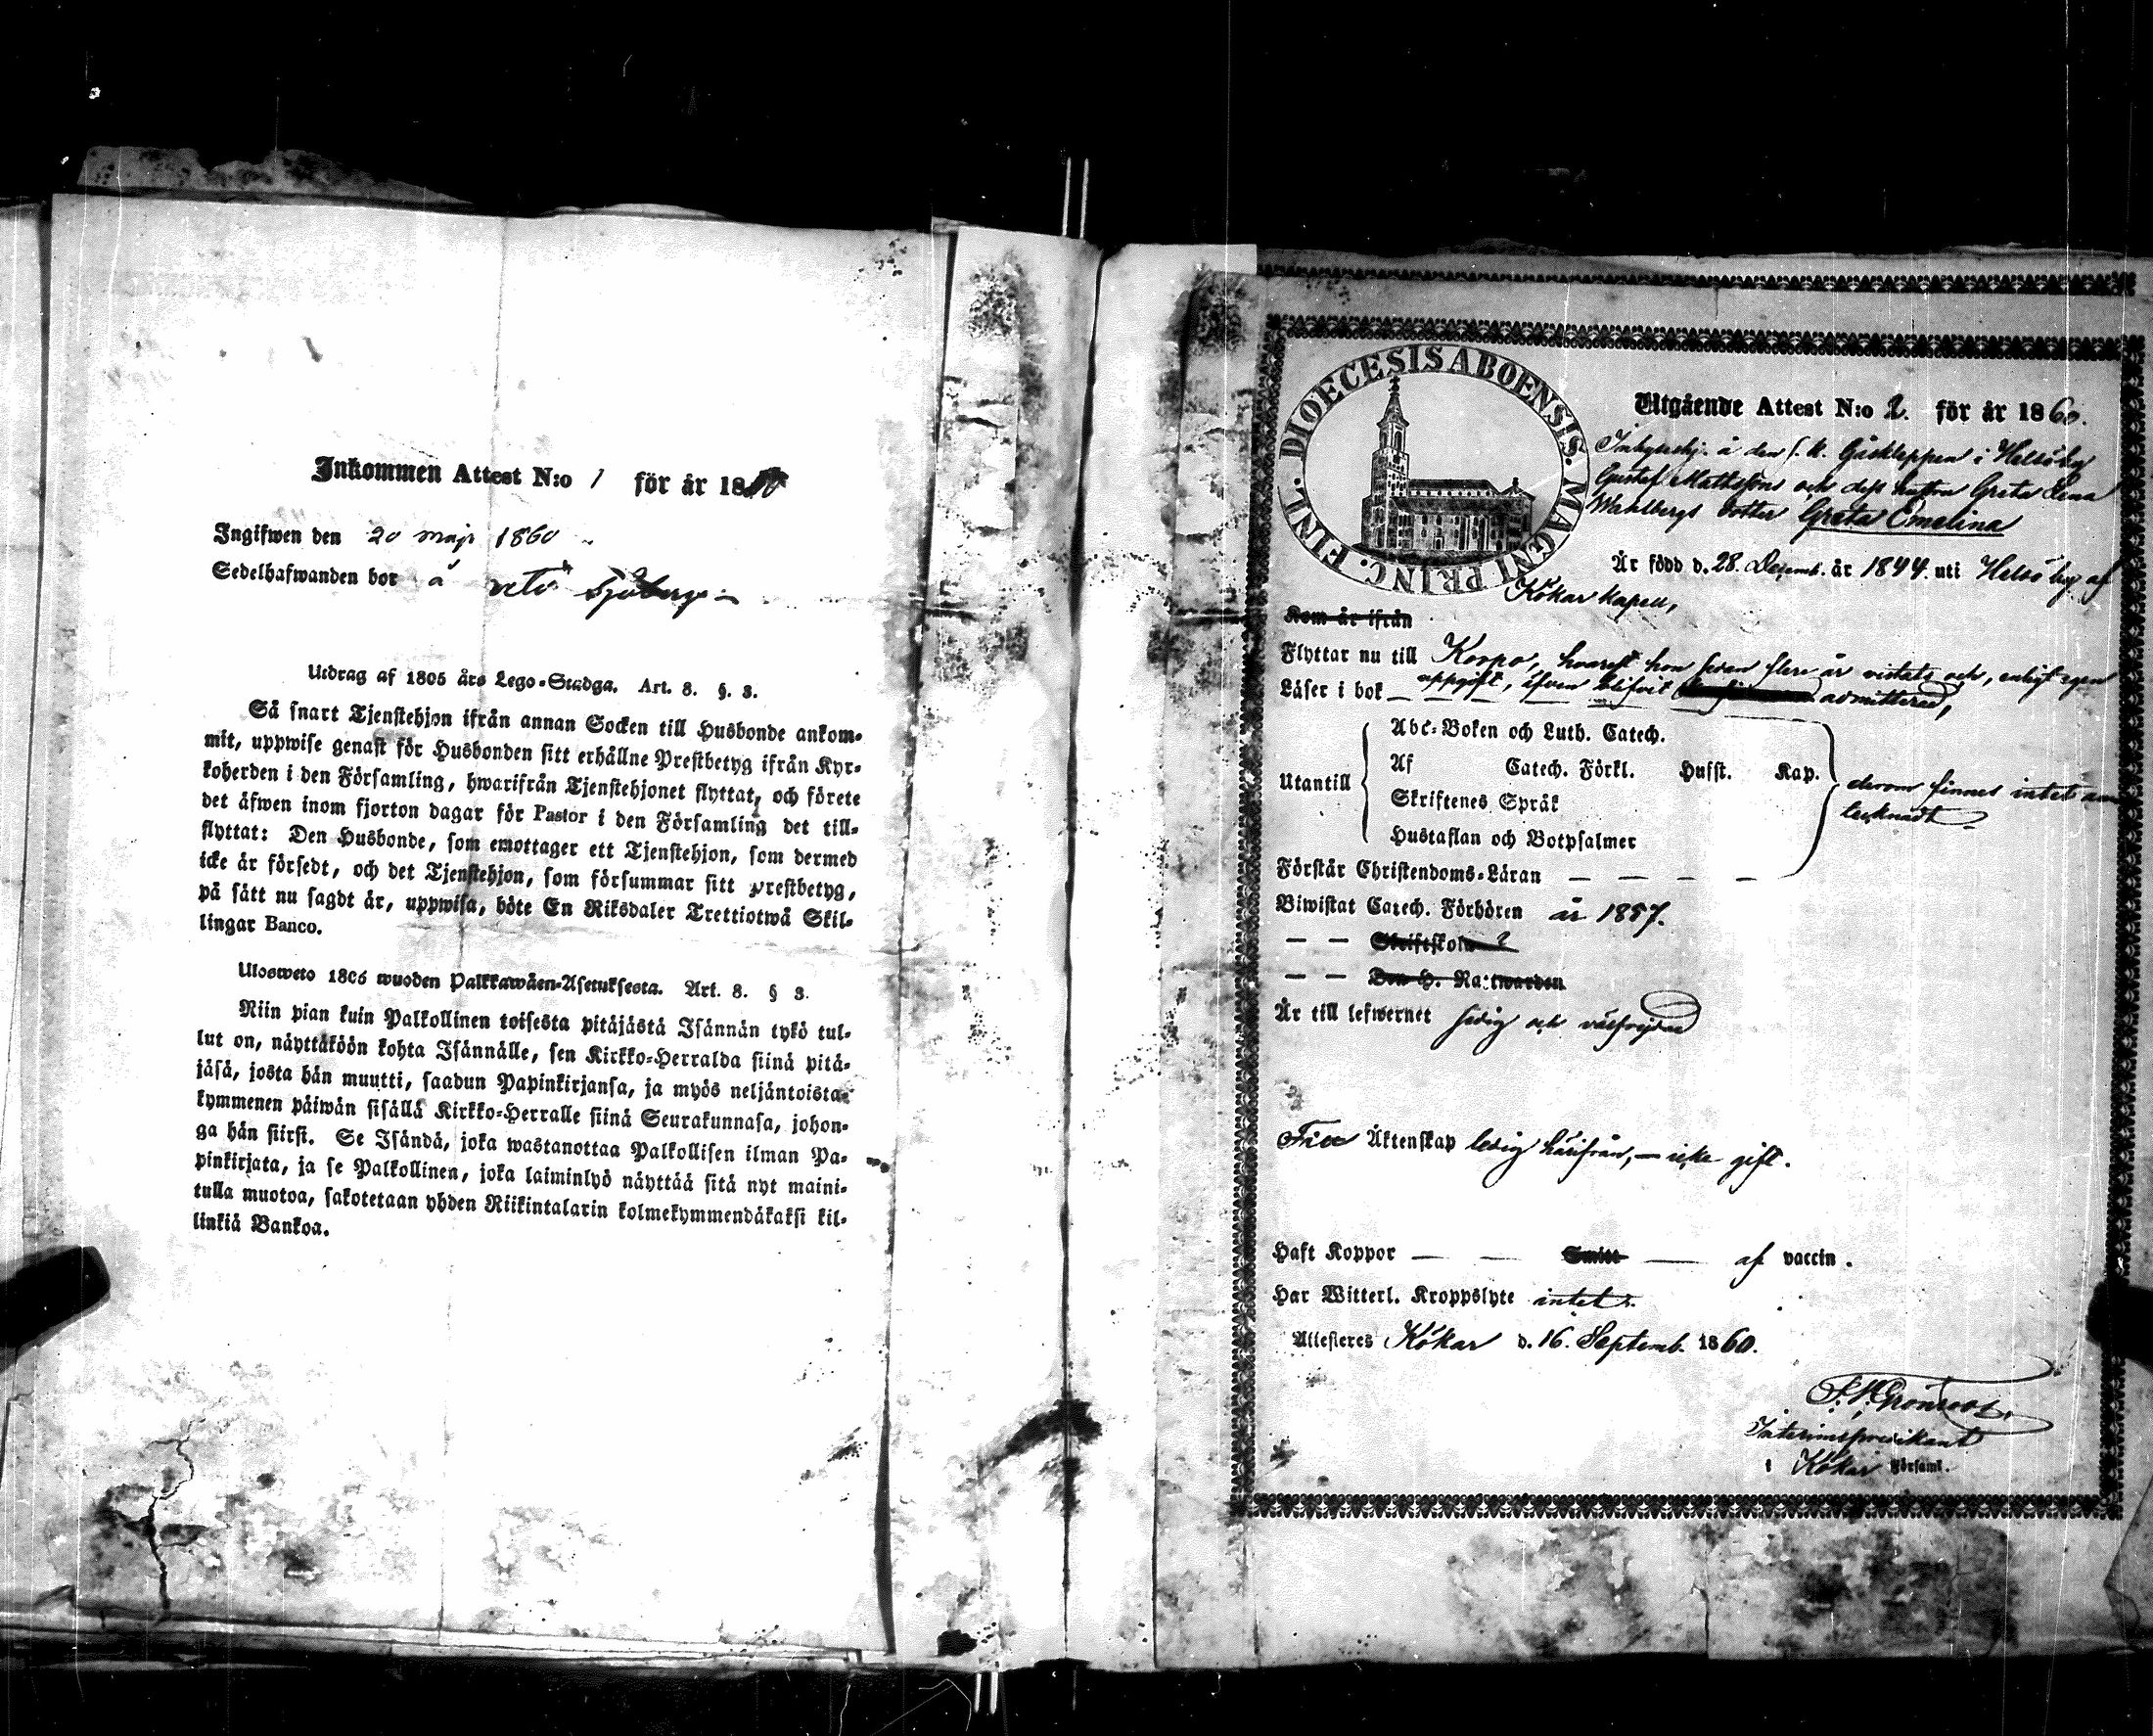 Inkommen Attest N:o 1 för år 18
Ingifwen den 20 maji 1860
Sedelhafwanden bor å
Utdrag af 1805 års Lego-Stadga. Art. 8. §. 3.
Så snart Tjenstehjon ifrån annan Socken till Husbonde ankom-
mit, uppwise genast för Husbonden sitt erhållne Prestbetyg ifrån Kyr-
koherden i den Församling, hwarifrån Tjenstehjonet flyttat, och förete
det äfwen inom fjorton dagar för Pastor i den Församling det till-
flyttat: Den Husbonde, som emottager ett Tjenstehjon, som dermed
icke är försedt, och det Tjenstehjon, som försummar sitt prestbetyg,
på sätt nu sagdt är, uppwisa, böte En Riksdaler Trettiotwå Skil-
lingar Banco.
Ulosweto 1805 wuoden Palkkawäen-Asetuksesta. Art. 8. § 3.
Niin pian kuin Palkollinen toisesta pitäjästä Isännän tykö tul-
lut on, näyttäköön kohta Isännälle, sen Kirkko-Herralda siinä pitä-
jäsä, josta hän muutti, saadun Papinkirjansa, ja myös neljäntoista-
kymmenen päiwän sisällä Kirkko-Herralle siinä Seurakunnasa, johon-
ga hän siirsi. Se Isändä, joka wastanottaa Palkollisen ilman Pa-
pinkirjata, ja se Palkollinen, joka laiminlyö näyttää sitä nyt maini-
tulla muotoa, sakotetaan yhden Riikintalarin kolmekymmendäkaksi kil-
linkiä Bankoa.
DIOECESIS ABOENSIS. MAGNI PRINC. FINL.
Utgående Attest N:o 2. för år 1860.
å den i Helsöby
Gustaf Mathssons och dess hustru Greta Lena
Wahlbergs dotter Greta Emelina
Är född d. 28. Decemb. år 1844. uti Helsöby af
Kökar kapell,
Kom år ifrån
Flyttar nu till Korpo, hvarest hon flere år vistats och, enligt egen
uppgift, äfven blifvit admitterad,
Läser i bok
Abc-Boken och Luth. Catech.
Utantill
Af Catech. Förkl. Husst. Kap.
Skriftenes Språk
Hustaflan och Botpsalmer
derom finnes intet an-
tecknadt
Förstår Christendoms-Läran
Biwistat Catech. Förhören år 1857.
— — Skriftskola
— — Den H. Nattwarden
Är till lefwernet sedig och välfrejdad
Till Äktenskap ledig härifrån, — icke gift.
Haft Koppor — — Smitt — af vaccin.
Har Witterl. Kroppslyte intet.
Attesteres Kökar d. 16. Septemb. 1860.
Grönroos
Interimspredikant
i Kökar Församl.